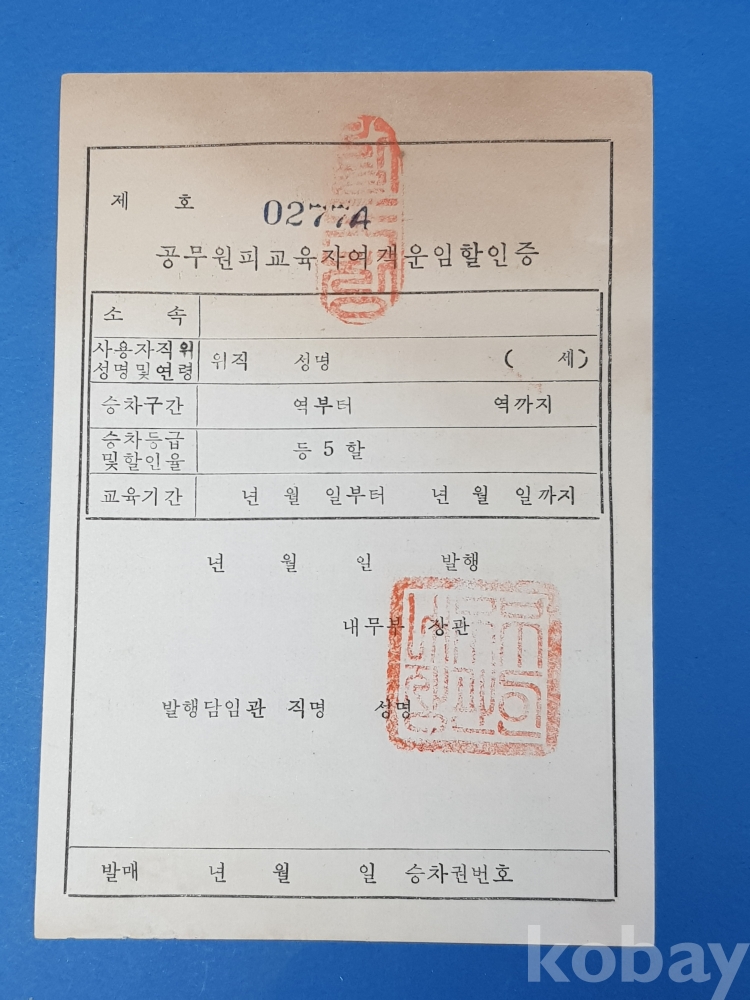 제 호
02774
공무원피교육자여객운임할인증
소 속
사용자직위
성명및연령
위직 성명 ( 세)
승차구간 역부터 역까지
승차등급
및할인율
등 5 할
교육기간 년 월 일부터 년 월 일까지
년 월 일 발행
내무부 장관
발행담임관 직명 성명
발매 년 월 일 승차권번호
kobay